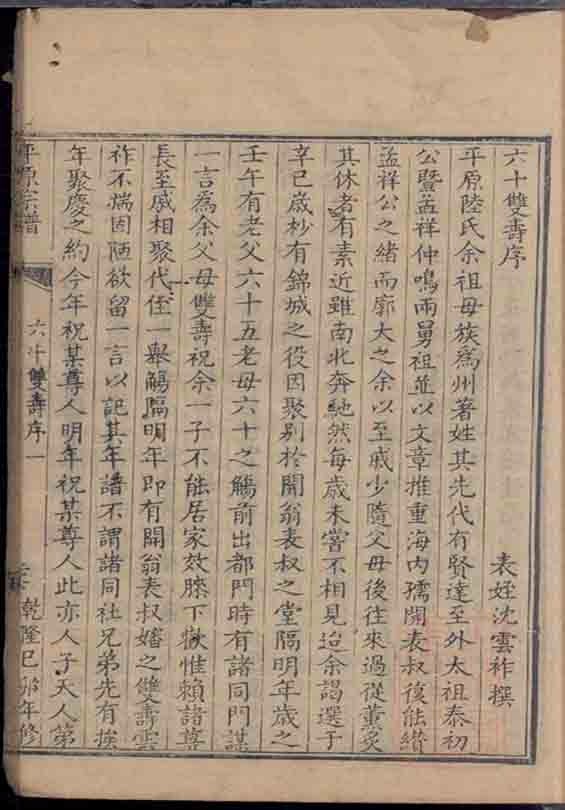 六十雙壽序
表姪沈雲祚撰
平原陸氏余祖母族爲州著姓其先代有賢達至外太祖泰初
公暨孟祥仲鳴兩舅祖並以文章推重海內孺開表叔復能纘
孟祥公之緒而廓大之余以至戚少隨父母後往來過從薰炙
其休者有素近雖南北奔馳然每歲未嘗不相見迨余謁選于
辛巳歲杪有錦城之役因聚別於開翁表叔之堂隔明年歲之
壬午有老父六十五老母六十之觴前出都門時有諸同門謀
一言爲余父母雙壽祝余一子不能居家效膝下歡惟賴諸尊
長至戚相聚代侄一舉觴隔明年即有開翁表叔嬸之雙壽雲
祚不揣固陋欲留一言以記其年譜不謂諸同社兄弟先有挨
年聚慶之約今年祝某尊人明年祝某尊人此亦人子天人第
平原宗譜
六十雙壽序一
乾隆己卯年修